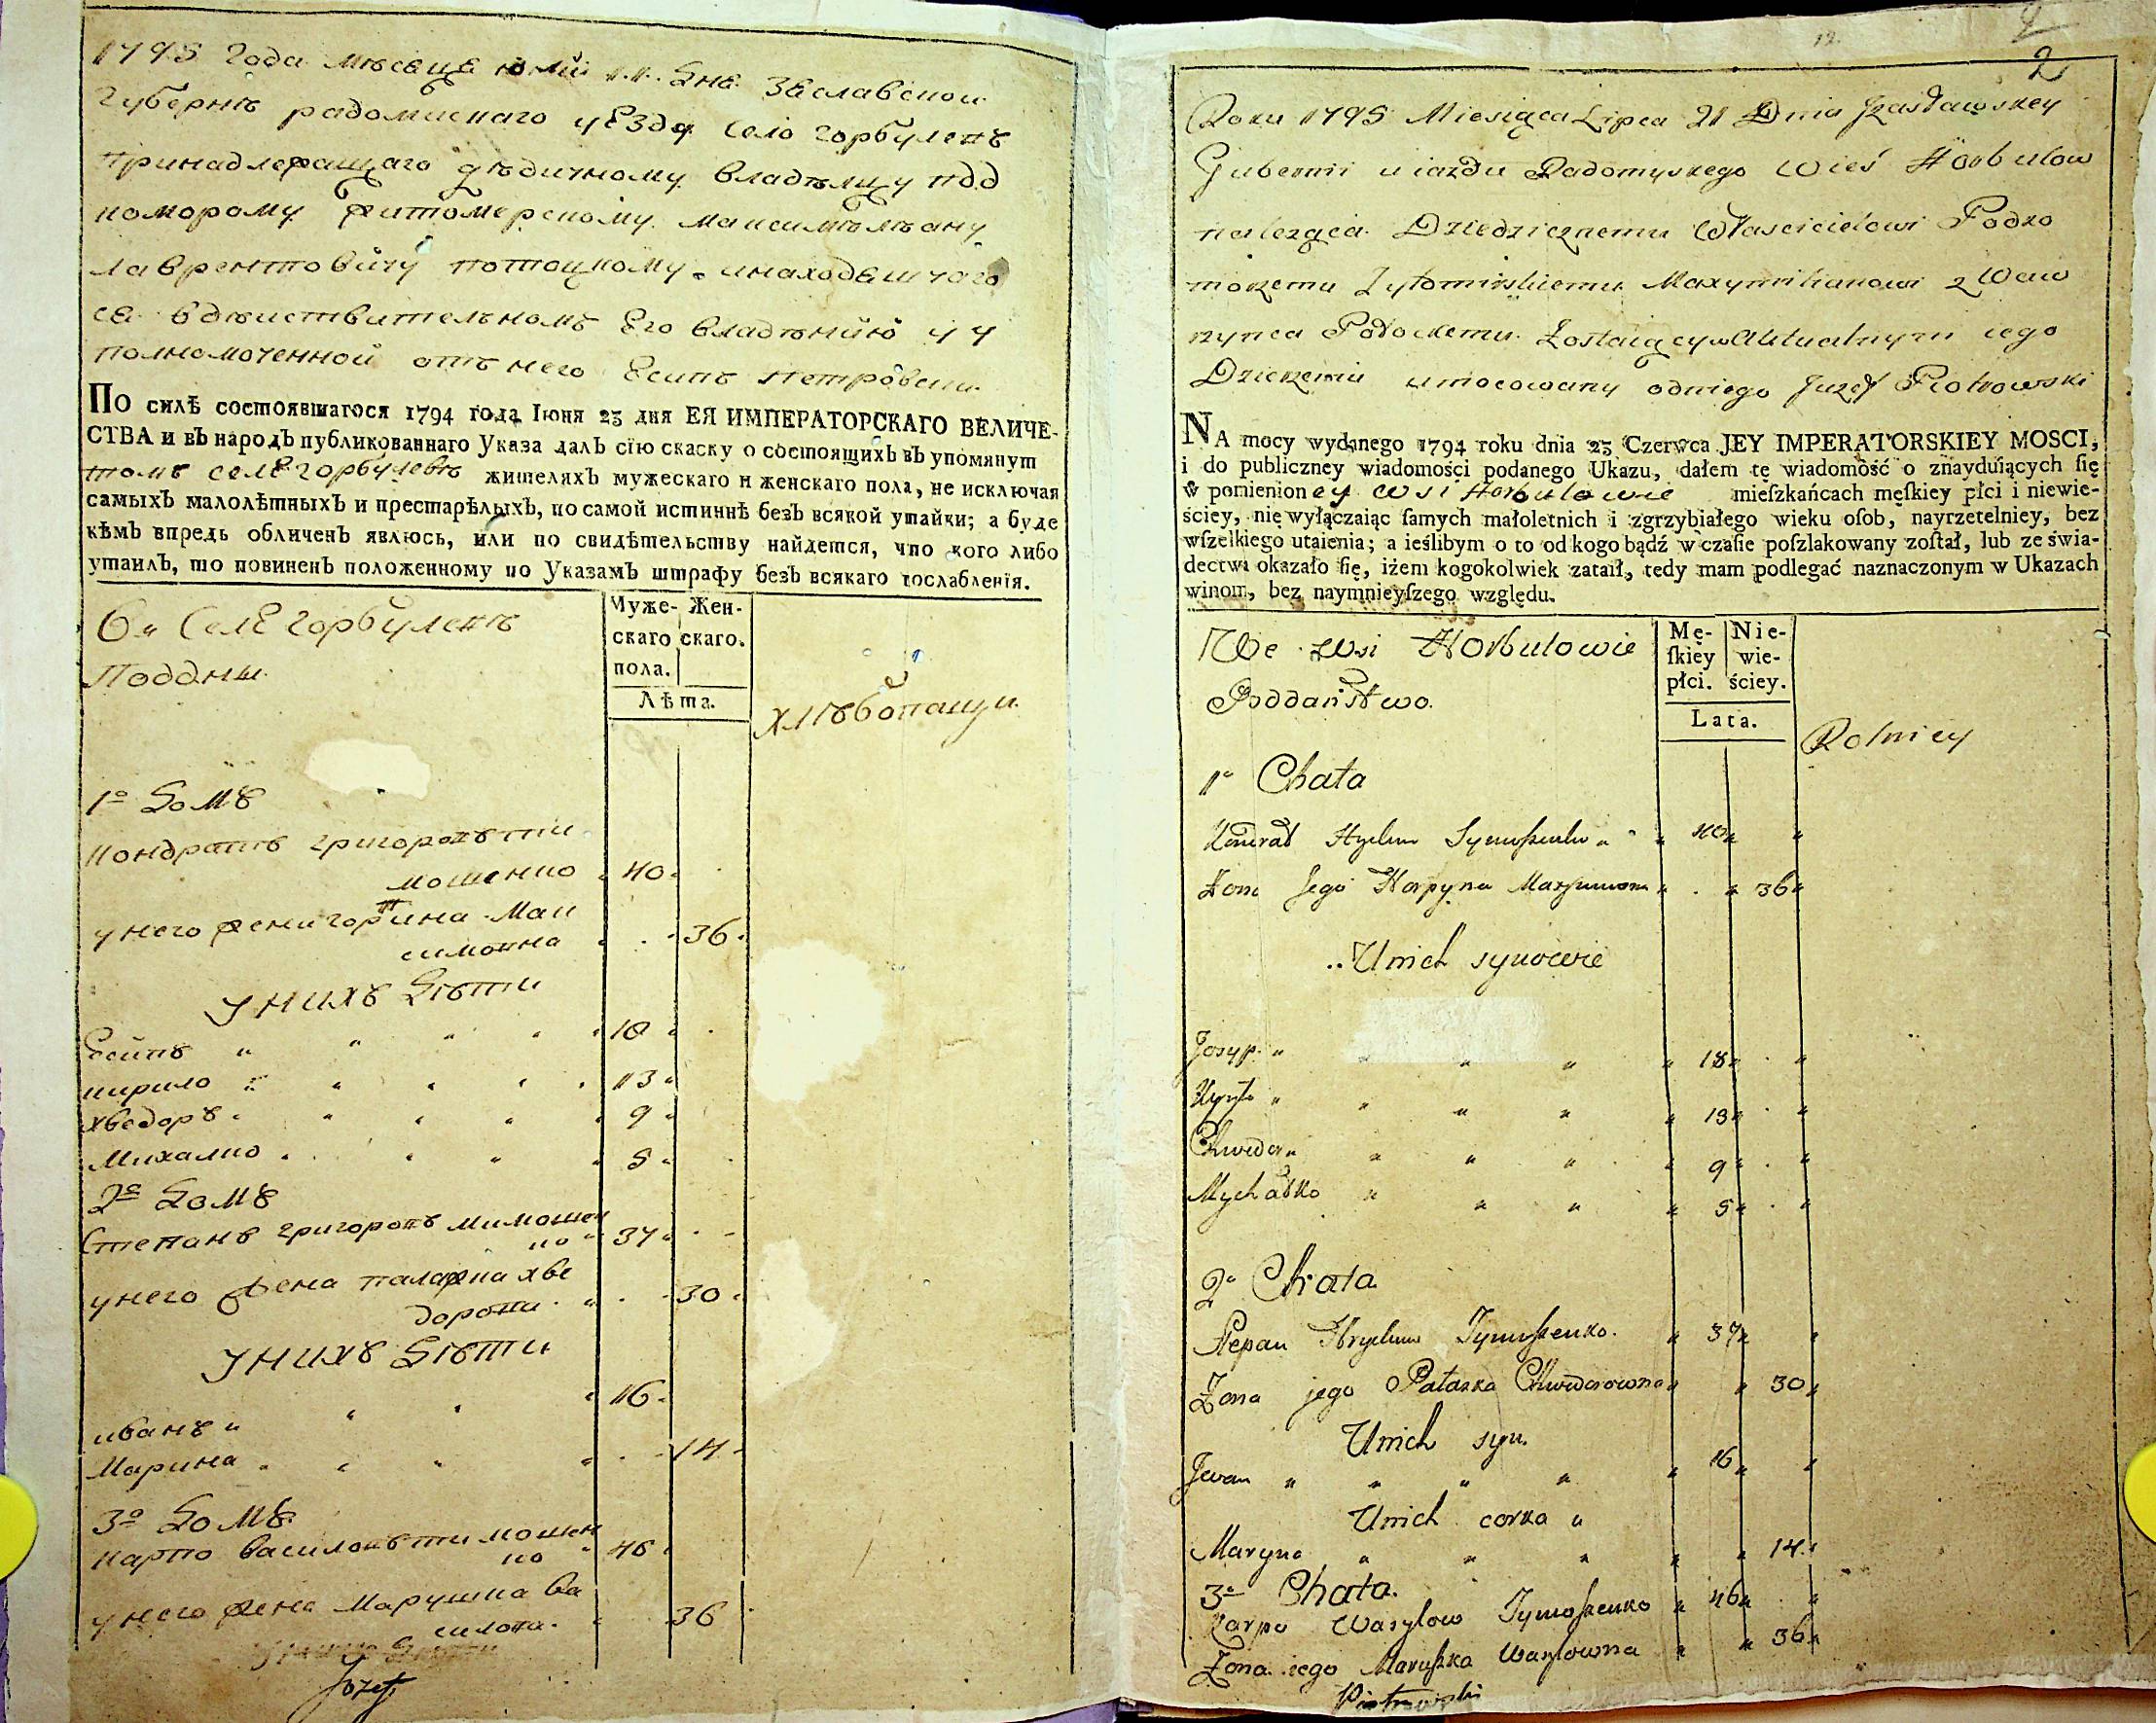 1795 года мѣсяця юлій 11. дня Заславской
губерніѣ радомискаго уезду село горбулевъ
принадлежащаго дѣдичному владѣлцу под
коморому житомерскому максимѣлѣану
лаврентовичу потоцкому. инаходящаго
ся вдѣиствителномъ его владѣнию и у
полномоченной отъ него Есипъ петровски
ПО силѣ состоявшагося 1794 года Іюня 23 дня ЕЯ ИМПЕРАТОРСКАГО ВЕЛИЧЕ-
СТВА и въ народъ публикованнаго Указа далъ сію скаску о состоящихъ въ упомянут
томъ селе горбулевѣ жителяхъ мужескаго и женскаго пола, не исключая
самыхъ малолѣтныхъ и престарѣлыхъ, по самой истиннѣ безъ всякой утайки; а буде
кѣмъ впредь обличенъ явлюсь, или по свидѣтельству найдется, что кого либо
утаилъ, то повиненъ положенному по Указамъ штрафу безъ всякаго послабленія.
Селе горбулевъ
Поддны
Муже- Жен-
скаго скаго.
пола.
Лѣта.
хлѣбопащи
1º домъ
кондратъ григоровъ ти
мошенко 40
у него жени горпина Мак
симовна 36
у нихъ дѣти
Есипъ 18
кирило 13
хведоръ 9
Михалко 5
2º домъ
Степанъ григоровъ тимошен
ко 37
у него жена палажка хве
доровн 30
у нихъ дѣти
иванъ 16
Марина 14
3º домъ
карпо василовъ тимошен
ко 46
у него жена Марушка ва
силовн. 36
у нихъ дѣти
Jozef
2
Roku 1795 Miesiąca Lipca 21 Dnia Izasławskey
Gubernii uiazdu Radomyskego Wieś Horbulow
należąca Dziedzicznemu Właścicielowi Podko
morzemu Zytomirskiemu Maxymilianowi z Waw
rzynca Potockemu. Zostaiący w Aktualnym iego
Dzierzeniu umocowany od niego Juzef Piotrowski
NA mocy wydanego 1794 roku dnia 23 Czerwca JEY IMPERATORSKIEY MOSCI,
i do publiczney wiadomości podanego Ukazu, dałem tę wiadomość o znayduiących się
w pomienioney wsi Horbulowie mieſzkańcach męſkiey płci i niewie-
ściey, nie wyłączaiąc ſamych małoletnich i zgrzybiałego wieku oſob, nayrzetelniey, bez
wſzelkiego utaienia; a ieślibym o to od kogo bądź w czaſie poſzlakowany zoſtał, lub ze świa-
dectwa okazało się, iżem kogokolwiek zataił, tedy mam podlegać naznaczonym w Ukazach
winom, bez naymnieyſzego względu.
We wsi Horbulowie
Poddaństwo.
Mę- Nie-
ſkiey wie-
płci. ściey.
Lata.
Rolnicy
1º Chata
Kondrat Hryhow Tymoſzenko 40
Zona Jego Horpyna Maxymowna 36
U nich synowie
Josyp 18
Kyryło 13
Chwedor 9
Mychałko 5
2º Chata
Stepan Hryhow Tymoſzenko. 37
Zona jego Pałaszka Chwedorowna 30
U nich syn.
Jwan 16
U nich corka
Maryna 14
3º Chata.
Karpo Wasylow Tymoſzenko 46
Zona iego Maruſzka Wasylowna 36
Piotrowski